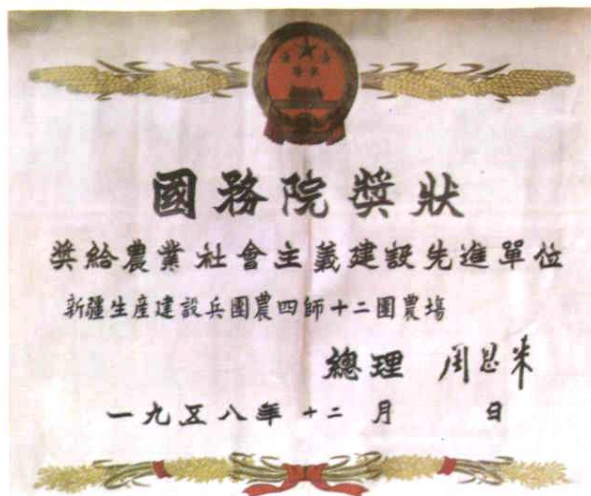 國務院獎狀
奖給農業社會主義建設先進單位
新疆生產建設兵團農四師十二團農場
總理 周恩来
一九五八年十二月 日